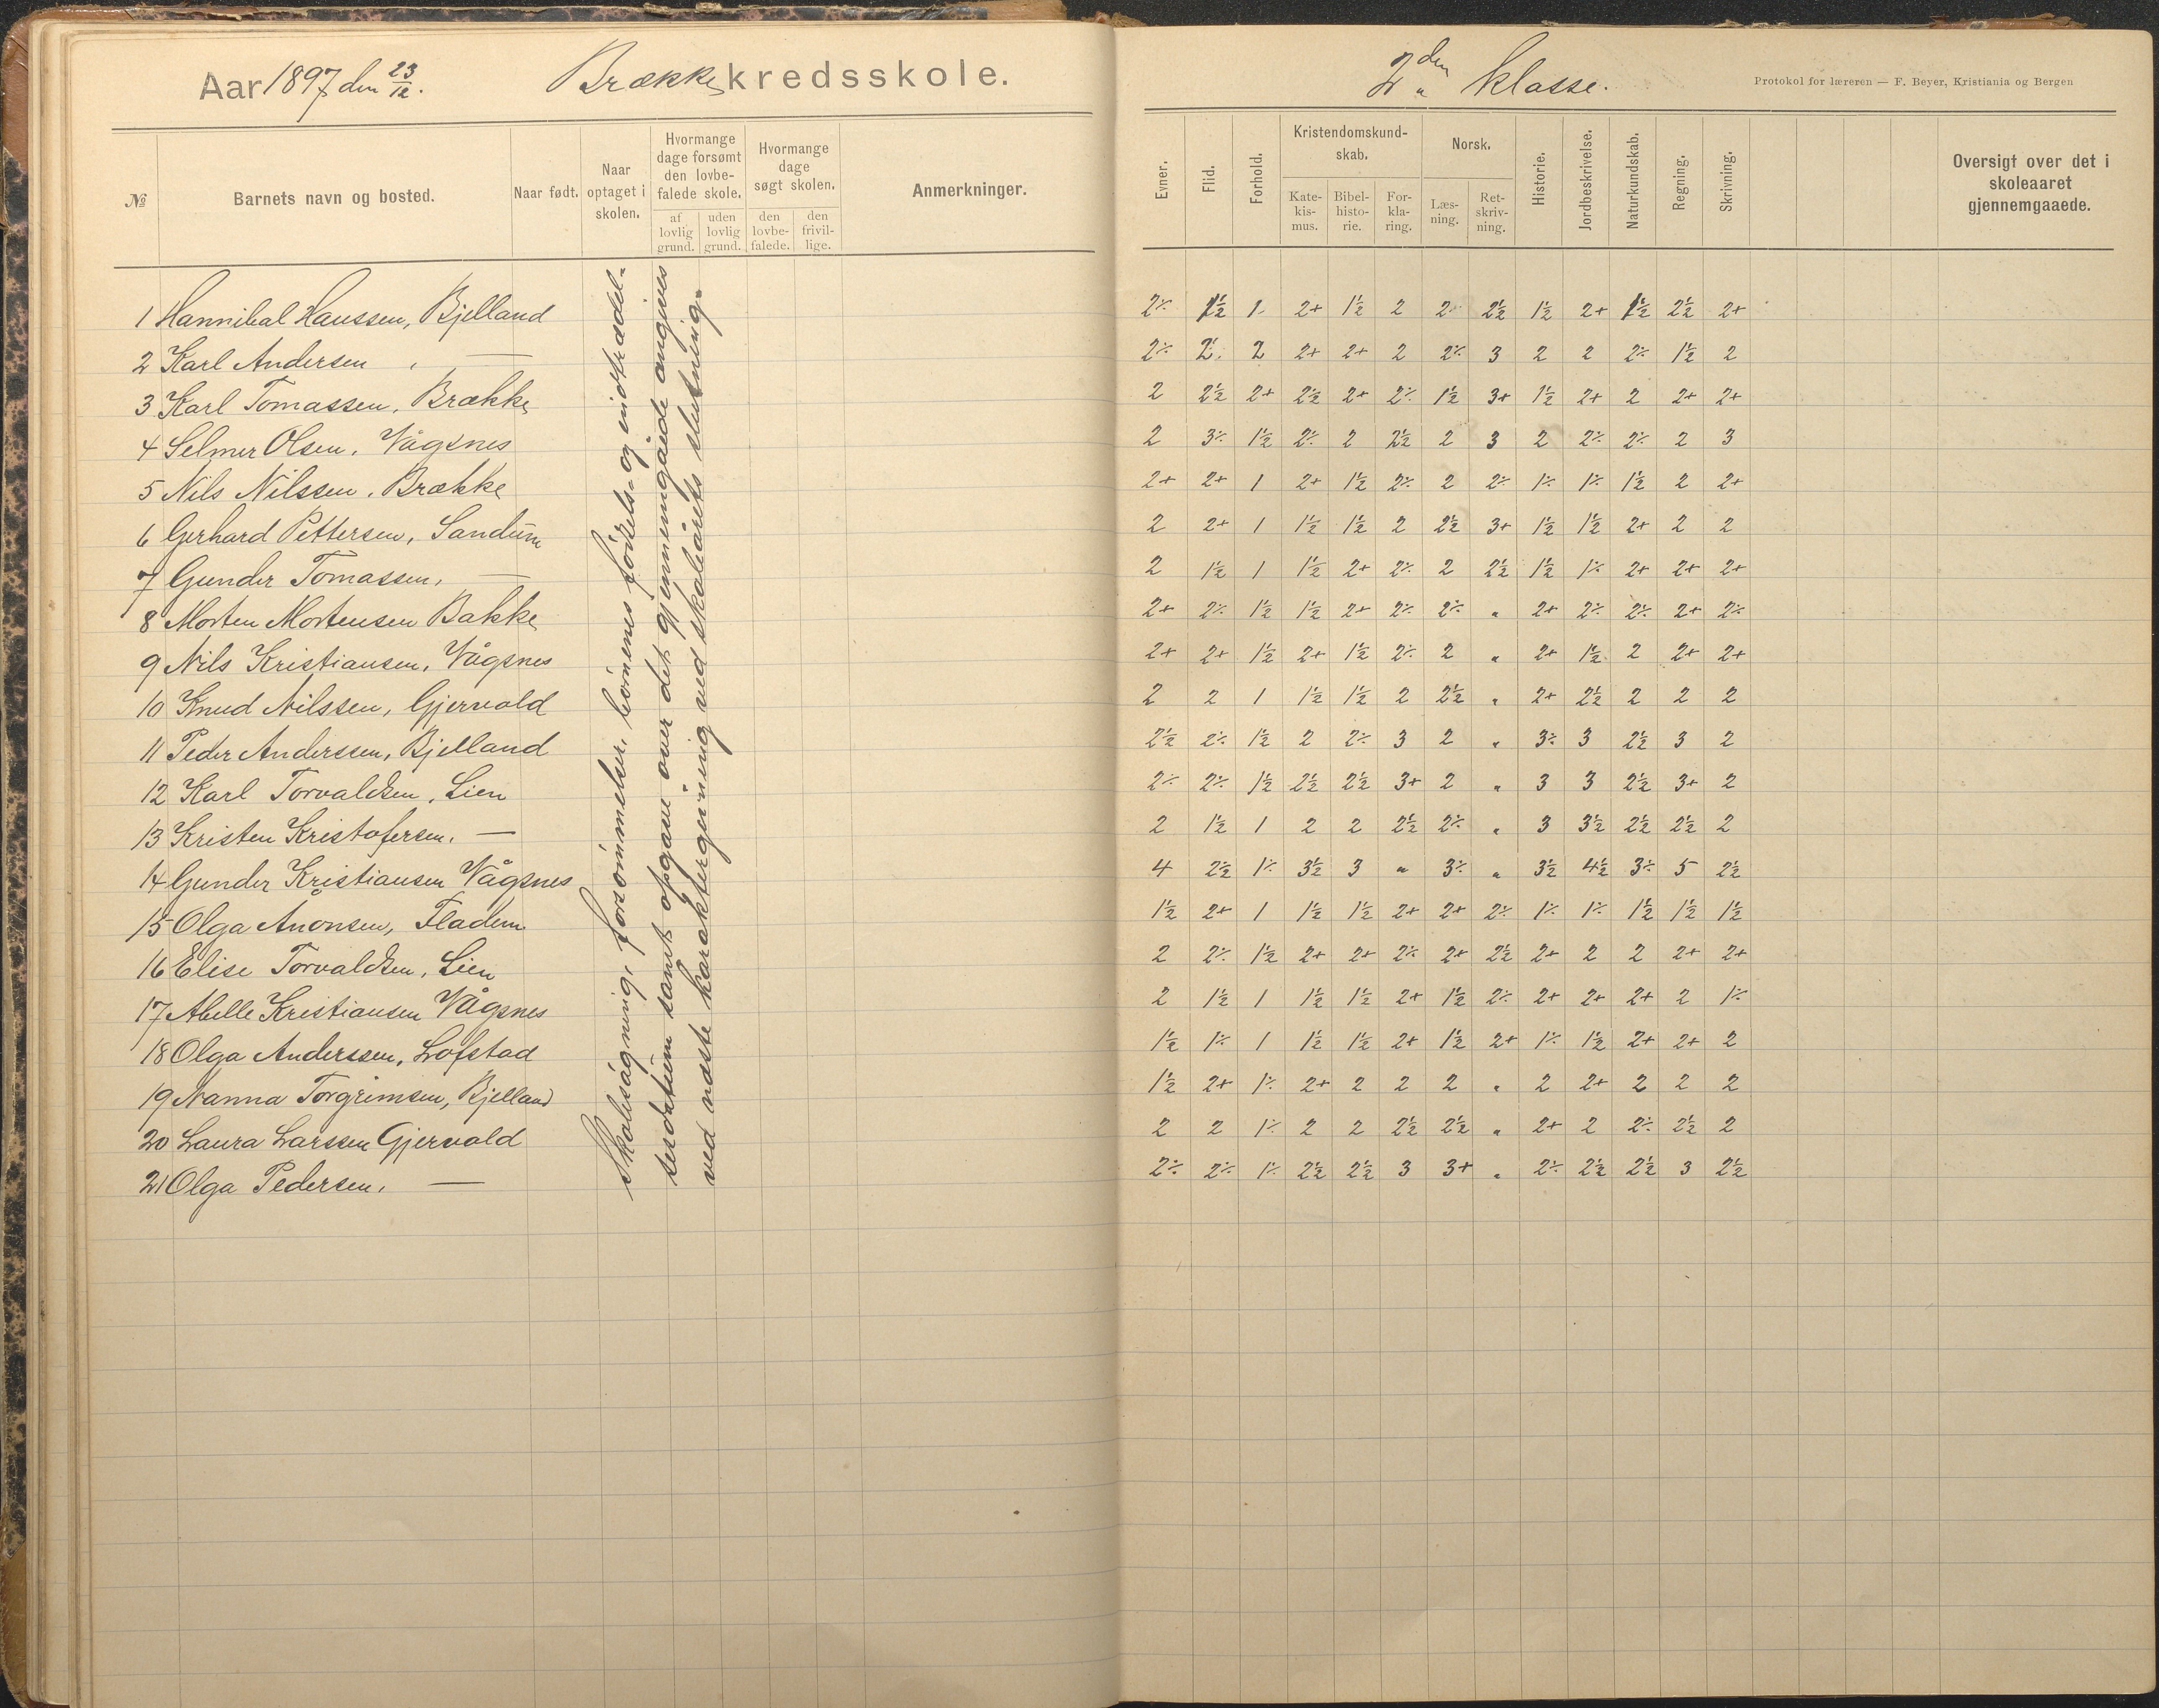 Aar 1897 den 23/12. Brække kredsskole.
№ Barnets navn og bosted. Naar født. Naar optaget i skolen. Hvormange dage forsømt den lovbefalede skole. af lovlig grund. uden lovlig grund. Hvormange dage søgt skolen. den lovbefalede. den frivillige. Anmerkninger.
1 Hannibal Hanssen, Bjelland
2 Karl Andersen, —
3 Karl Tomassen, Brække
4 Selmer Olsen, Vågsnes
5 Nils Nilssen, Brække
6 Gerhard Pettersen, Sandum
7 Gunder Tomassen, —
8 Morten Mortensen Bakke
9 Nils Kristiansen, Vågsnes
10 Knud Nilssen, Gjervold
11 Peder Anderssen, Bjelland
12 Karl Torvaldsen, Lien
13 Kristen Kristofersen, —
14 Gunder Kristiansen Vågsnes
15 Olga Anonsen, Fladem
16 Elise Torvaldsen, Lien
17 Abelle Kristiansen Vågsnes
18 Olga Anderssen, Lofstad
19 Nanna Torgrimsen, Bjelland
20 Laura Larssen Gjervold
21 Olga Pedersen, —
Skolesøgning, forsømmelser, børnenes fødsels- og indtrædel-
sesdatum samt opgave over det gjennemgåede angives
ved næste karaktergivning ved skoleårets slutning.
2den klasse.
Protokol for læreren — F. Beyer, Kristiania og Bergen
Evner. Flid. Forhold. Kristendomskundskab. Katekismus. Bibelhistorie. Forklaring. Norsk. Læsning. Retskrivning. Historie. Jordbeskrivelse. Naturkundskab. Regning. Skrivning. Oversigt over det i skoleaaret gjennemgaaede.
2÷ 1½ 1 2+ 1½ 2 2 2½ 1½ 2+ 1½ 2½ 2+
2÷ 2 2 2+ 2+ 2 2÷ 3 2 2 2÷ 1½ 2
2 2½ 2+ 2½ 2+ 2÷ 1½ 3+ 1½ 2+ 2 2+ 2+
2 3÷ 1½ 2÷ 2 2½ 2 3 2 2÷ 2÷ 2 3
2+ 2+ 1 2+ 1½ 2÷ 2 2÷ 1÷ 1÷ 1½ 2 2+
2 2+ 1 1½ 1½ 2 2½ 3+ 1½ 1½ 2+ 2 2
2 1½ 1 1½ 2+ 2÷ 2 2½ 1½ 1÷ 2+ 2+ 2+
2+ 2÷ 1½ 1½ 2+ 2÷ 2÷ " 2+ 2÷ 2÷ 2+ 2÷
2+ 2+ 1½ 2+ 1½ 2÷ 2 " 2+ 1½ 2 2+ 2+
2 2 1 1½ 1½ 2 2½ " 2+ 2½ 2 2 2
2½ 2÷ 1½ 2 2÷ 3 2 " 3÷ 3 2½ 3 2
2÷ 2÷ 1½ 2½ 2½ 3+ 2 " 3 3 2½ 3+ 2
2 1½ 1 2 2 2½ 2÷ " 3 3½ 2½ 2½ 2
4 2½ 1÷ 3½ 3 " 3÷ " 3½ 4½ 3÷ 5 2½
1½ 2+ 1 1½ 1½ 2+ 2+ 2÷ 1÷ 1÷ 1½ 1½ 1½
2 2÷ 1½ 2+ 2+ 2÷ 2+ 2½ 2+ 2 2 2+ 2+
2 1½ 1 1½ 1½ 2+ 1½ 2÷ 2+ 2+ 2+ 2 1÷
1½ 1÷ 1 1½ 1½ 2+ 1½ 2+ 1÷ 1½ 2+ 2+ 2
1½ 2+ 1÷ 2+ 2 2 2 " 2 2+ 2 2 2
2 2 1÷ 2 2 2½ 2½ " 2+ 2 2÷ 2½ 2
2÷ 2÷ 1÷ 2½ 2½ 3 3+ " 2÷ 2½ 2½ 3 2½